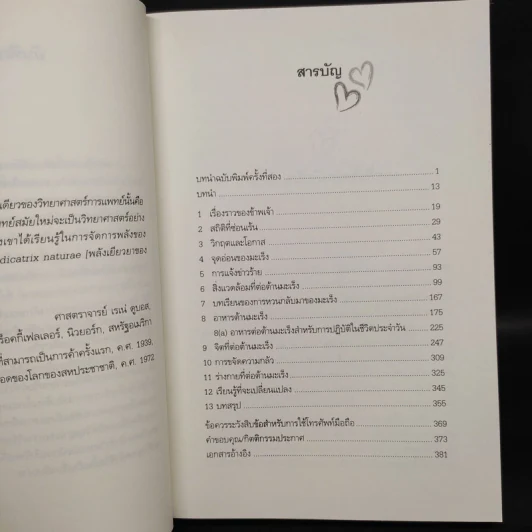 เดียวของวิทยาศาสตร์การแพทย์นั้นคือ
พทย์สมัยใหม่จะเป็นวิทยาศาสตร์อย่าง
งเขาได้เรียนรู้ในการจัดการพลังของ
dicatrix naturae [พลังเยียวยาของ
ศาสตราจารย์ เรเน่ ดูบอส,
ร็อคกี้เฟลเลอร์, นิวยอร์ก, สหรัฐอเมริกา
ที่สามารถเป็นการค้าครั้งแรก, ค.ศ. 1939,
อดของโลกของสหประชาชาติ, ค.ศ. 1972
สารบัญ
บทนำฉบับพิมพ์ครั้งที่สอง 1
บทนำ 13
1 เรื่องราวของข้าพเจ้า 19
2 สถิติที่ซ่อนเร้น 29
3 วิกฤตและโอกาส 43
4 จุดอ่อนของมะเร็ง 57
5 การแจ้งข่าวร้าย 93
6 สิ่งแวดล้อมที่ต่อต้านมะเร็ง 99
7 บทเรียนของการหวนกลับมาของมะเร็ง 167
8 อาหารต้านมะเร็ง 175
8(a) อาหารต่อต้านมะเร็งสำหรับการปฏิบัติในชีวิตประจำวัน 225
9 จิตที่ต่อต้านมะเร็ง 247
10 การขจัดความกลัว 309
11 ร่างกายที่ต่อต้านมะเร็ง 325
12 เรียนรู้ที่จะเปลี่ยนแปลง 345
13 บทสรุป 355
ข้อควรระวังสิบข้อสำหรับการใช้โทรศัพท์มือถือ 369
คำขอบคุณ/กิตติกรรมประกาศ 373
เอกสารอ้างอิง 381